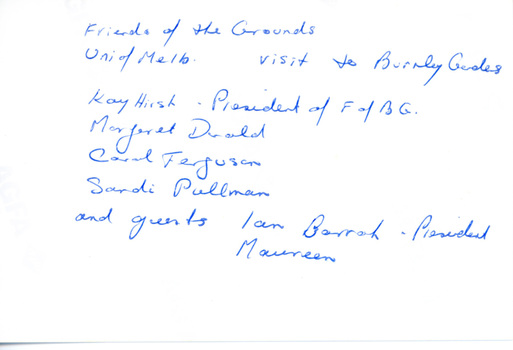 Friends of the Grounds
Uni of Melb. visit to Burnley Gardens
Kay Hirsh - President of F of BG.
Margaret Donald
Carol Ferguson
Sandi Pullman
and guests Ian Barrah - President
Maureen